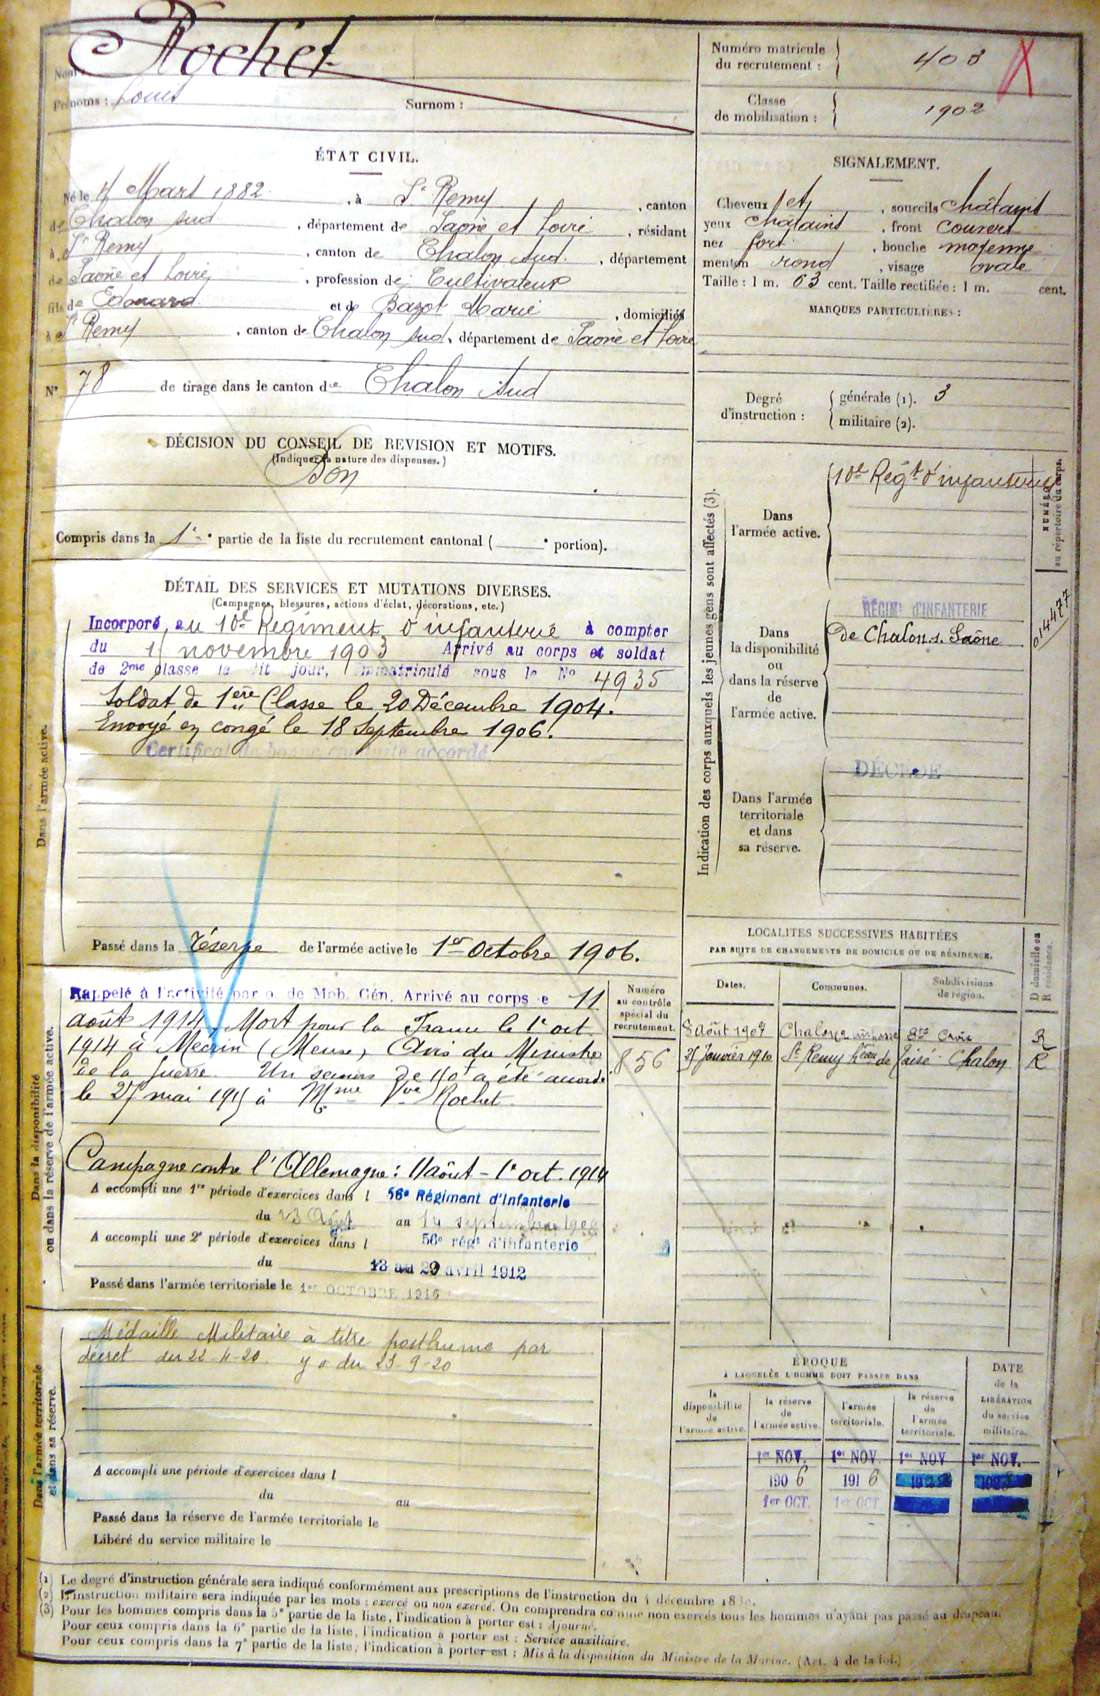 Rochet
Nom :
Prénoms : Louis Surnom :
Numéro matricule du recrutement : 403
Classe de mobilisation : 1902
ÉTAT CIVIL.
Né le 4 Mars 1882, à St Remy, canton
de Chalon Sud, département de Saône et Loire, résidant
à St Remy, canton de Chalon Sud, département
de Saône et Loire, profession de Cultivateur
fils de Edouard et de Bazot Marie, domiciliés
à St Remy, canton de Chalon Sud, département de Saône et Loire
N° 78 de tirage dans le canton de Chalon Sud
SIGNALEMENT.
Cheveux et, sourcils châtains
yeux châtains, front couvert
nez fort, bouche moyenne
menton rond, visage ovale
Taille : 1 m. 63 cent. Taille rectifiée : 1 m. cent.
MARQUES PARTICULIÈRES :
Degré d'instruction : générale (1). 3
militaire (2).
DÉCISION DU CONSEIL DE REVISION ET MOTIFS.
(Indiquer la nature des dispenses.)
Bon
Compris dans la 1e partie de la liste du recrutement cantonal ( e portion).
DÉTAIL DES SERVICES ET MUTATIONS DIVERSES.
(Campagnes, blessures, actions d'éclat, décorations, etc.)
Dans l'armée active.
Incorporé au 10e Régiment d'infanterie à compter
du novembre 1903 Arrivé au corps et soldat
de 2me classe le dit jour, immatriculé sous le No 4935
Soldat de 1ère Classe le 20 Décembre 1904.
Envoyé en congé le 18 Septembre 1906.
Certificat de bonne conduite accordé
Passé dans la réserve de l'armée active le 1er Octobre 1906.
Indication des corps auxquels les jeunes gens sont affectés (3).
NUMÉRO au répertoire du corps.
Dans l'armée active.
10e Régt d'infanterie
Dans la disponibilité ou dans la réserve de l'armée active.
RÉGIMt D'INFANTERIE
de Chalon s. Saône
014477
Dans l'armée territoriale et dans sa réserve.
DÉCÉDÉ
Dans la disponibilité ou dans la réserve de l'armée active.
Numéro au contrôle spécial du recrutement.
856
Rappelé à l'activité par o. de Mob. Gén. Arrivé au corps le 11
août 1914, Mort pour la France le 1e oct.
1914 à Mécrin (Meuse) Avis du Ministre
de la Guerre. Un secours de 150f a été accordé
le 27 mai 1915 à Mme Vve Rochet.
Campagne contre l'Allemagne : 11 août - 1e oct. 1914
A accompli une 1re période d'exercices dans l 56e Régiment d'Infanterie
du 23 Août au septembre
A accompli une 2e période d'exercices dans l 56e régt d'infanterie
du 13 au 29 avril 1912
Passé dans l'armée territoriale le 1er OCTOBRE 1916
LOCALITÉS SUCCESSIVES HABITÉES
PAR SUITE DE CHANGEMENTS DE DOMICILE OU DE RÉSIDENCE.
Dates. Communes. Subdivisions de région. D domicile ou R résidence.
8 août 1907 Chalon R
25 Janvier 1910 St Remy Chalon R
Dans l'armée territoriale et dans sa réserve.
Médaille Militaire à titre posthume par
décret du 22-4-20 du 23-9-20
A accompli une période d'exercices dans l
du au
Passé dans la réserve de l'armée territoriale le
Libéré du service militaire le
ÉPOQUE
A LAQUELLE L'HOMME DOIT PASSER DANS
la disponibilité de l'armée active.
la réserve de l'armée active.
l'armée territoriale.
la réserve de l'armée territoriale.
DATE de la LIBÉRATION du service militaire.
1er NOV. 1er NOV 1er NOV 1er NOV.
1906 1916
1er OCT. 1er OCT.
(1) Le degré d'instruction générale sera indiqué conformément aux prescriptions de l'instruction du 4 décembre
(2) L'instruction militaire sera indiquée par les mots : exercé ou non exercé. On comprendra comme non exercés tous les hommes n'ayant pas passé au drapeau.
(3) Pour les hommes compris dans la 5e partie de la liste, l'indication à porter est : Ajourné.
Pour ceux compris dans la 6e partie de la liste, l'indication à porter est : Service auxiliaire.
Pour ceux compris dans la 7e partie de la liste, l'indication à porter est : Mis à la disposition du Ministre de la Marine. (Art. 4 de la loi.)